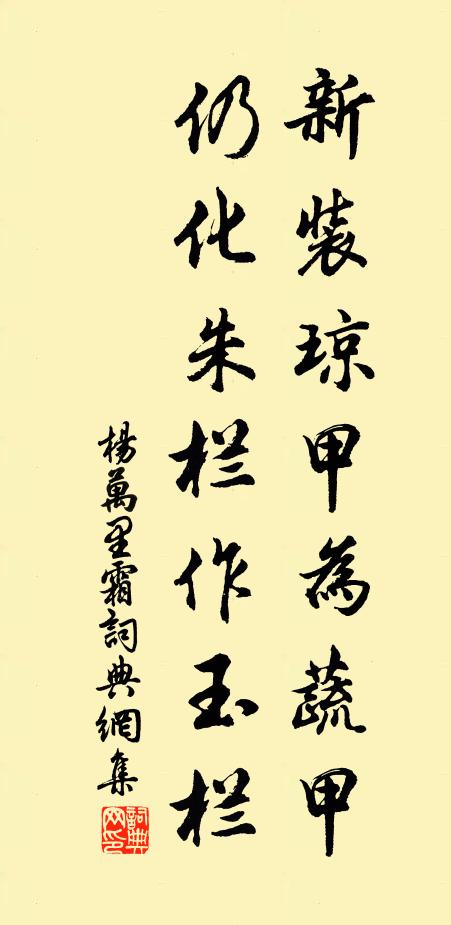 新装琼甲為蔬甲
仍化朱栏作玉栏
楊萬里霜詞典網集
詞典网印